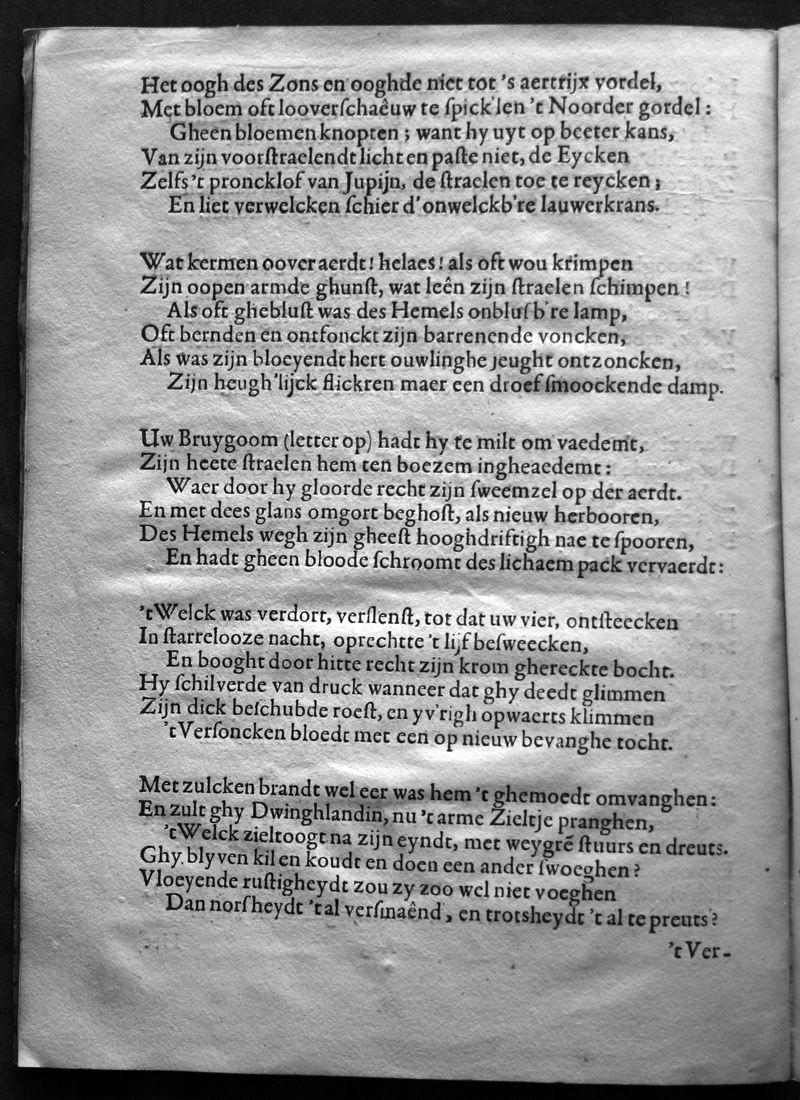 Het oogh des Zons en ooghde niet tot 's aertrijx vordel,
Met bloem oft looverſchaêuw te ſpick'len 't Noorder gordel:
Gheen bloemen knopten; want hy uyt op beeter kans,
Van zijn voorſtraelendt licht en paſte niet, de Eycken
Zelfs 't proncklof van Jupijn, de ſtraelen toe te reycken;
En liet verwelcken ſchier d'onwelckb're lauwerkrans.
Wat kermen oover aerdt! helaes! als oft wou krimpen
Zijn oopen armde ghunſt, wat leên zijn ſtraelen ſchimpen!
Als oft ghebluſt was des Hemels onbluſb're lamp,
Oft bernden en ontfonckt zijn barrenende voncken,
Als was zijn bloeyendt hert ouwlinghe jeught ontzoncken,
Zijn heugh'lijck flickren maer een droef ſmoockende damp.
Uw Bruygoom (letter op) hadt hy te milt om vaedemt,
Zijn heete ſtraelen hem ten boezem ingheaedemt:
Waer door hy gloorde recht zijn ſweemzel op der aerdt.
En met dees glans omgort beghoſt, als nieuw herbooren,
Des Hemels wegh zijn gheeſt hooghdriftigh nae te ſpooren,
En hadt gheen bloode ſchroomt des lichaem pack vervaerdt:
'tWelck was verdort, verſlenſt, tot dat uw vier, ontſteecken
In ſtarrelooze nacht, oprechtte 't lijf beſweecken,
En booght door hitte recht zijn krom ghereckte bocht.
Hy ſchilverde van druck wanneer dat ghy deedt glimmen
Zijn dick beſchubde roeſt, en yv'righ opwaerts klimmen
'tVerſoncken bloedt met een op nieuw bevanghe tocht.
Met zulcken brandt wel eer was hem 't ghemoedt omvanghen:
En zult ghy Dwinghlandin, nu 't arme Zieltje pranghen,
'tWelck zieltoogt na zijn eyndt, met weygrẽ ſtuurs en dreuts.
Ghy blyven kil en koudt en doen een ander ſwoeghen?
Vloeyende ruſtigheydt zou zy zoo wel niet voeghen
Dan norſheydt 't al verſmaênd, en trotsheydt 't al te preuts?
't Ver-